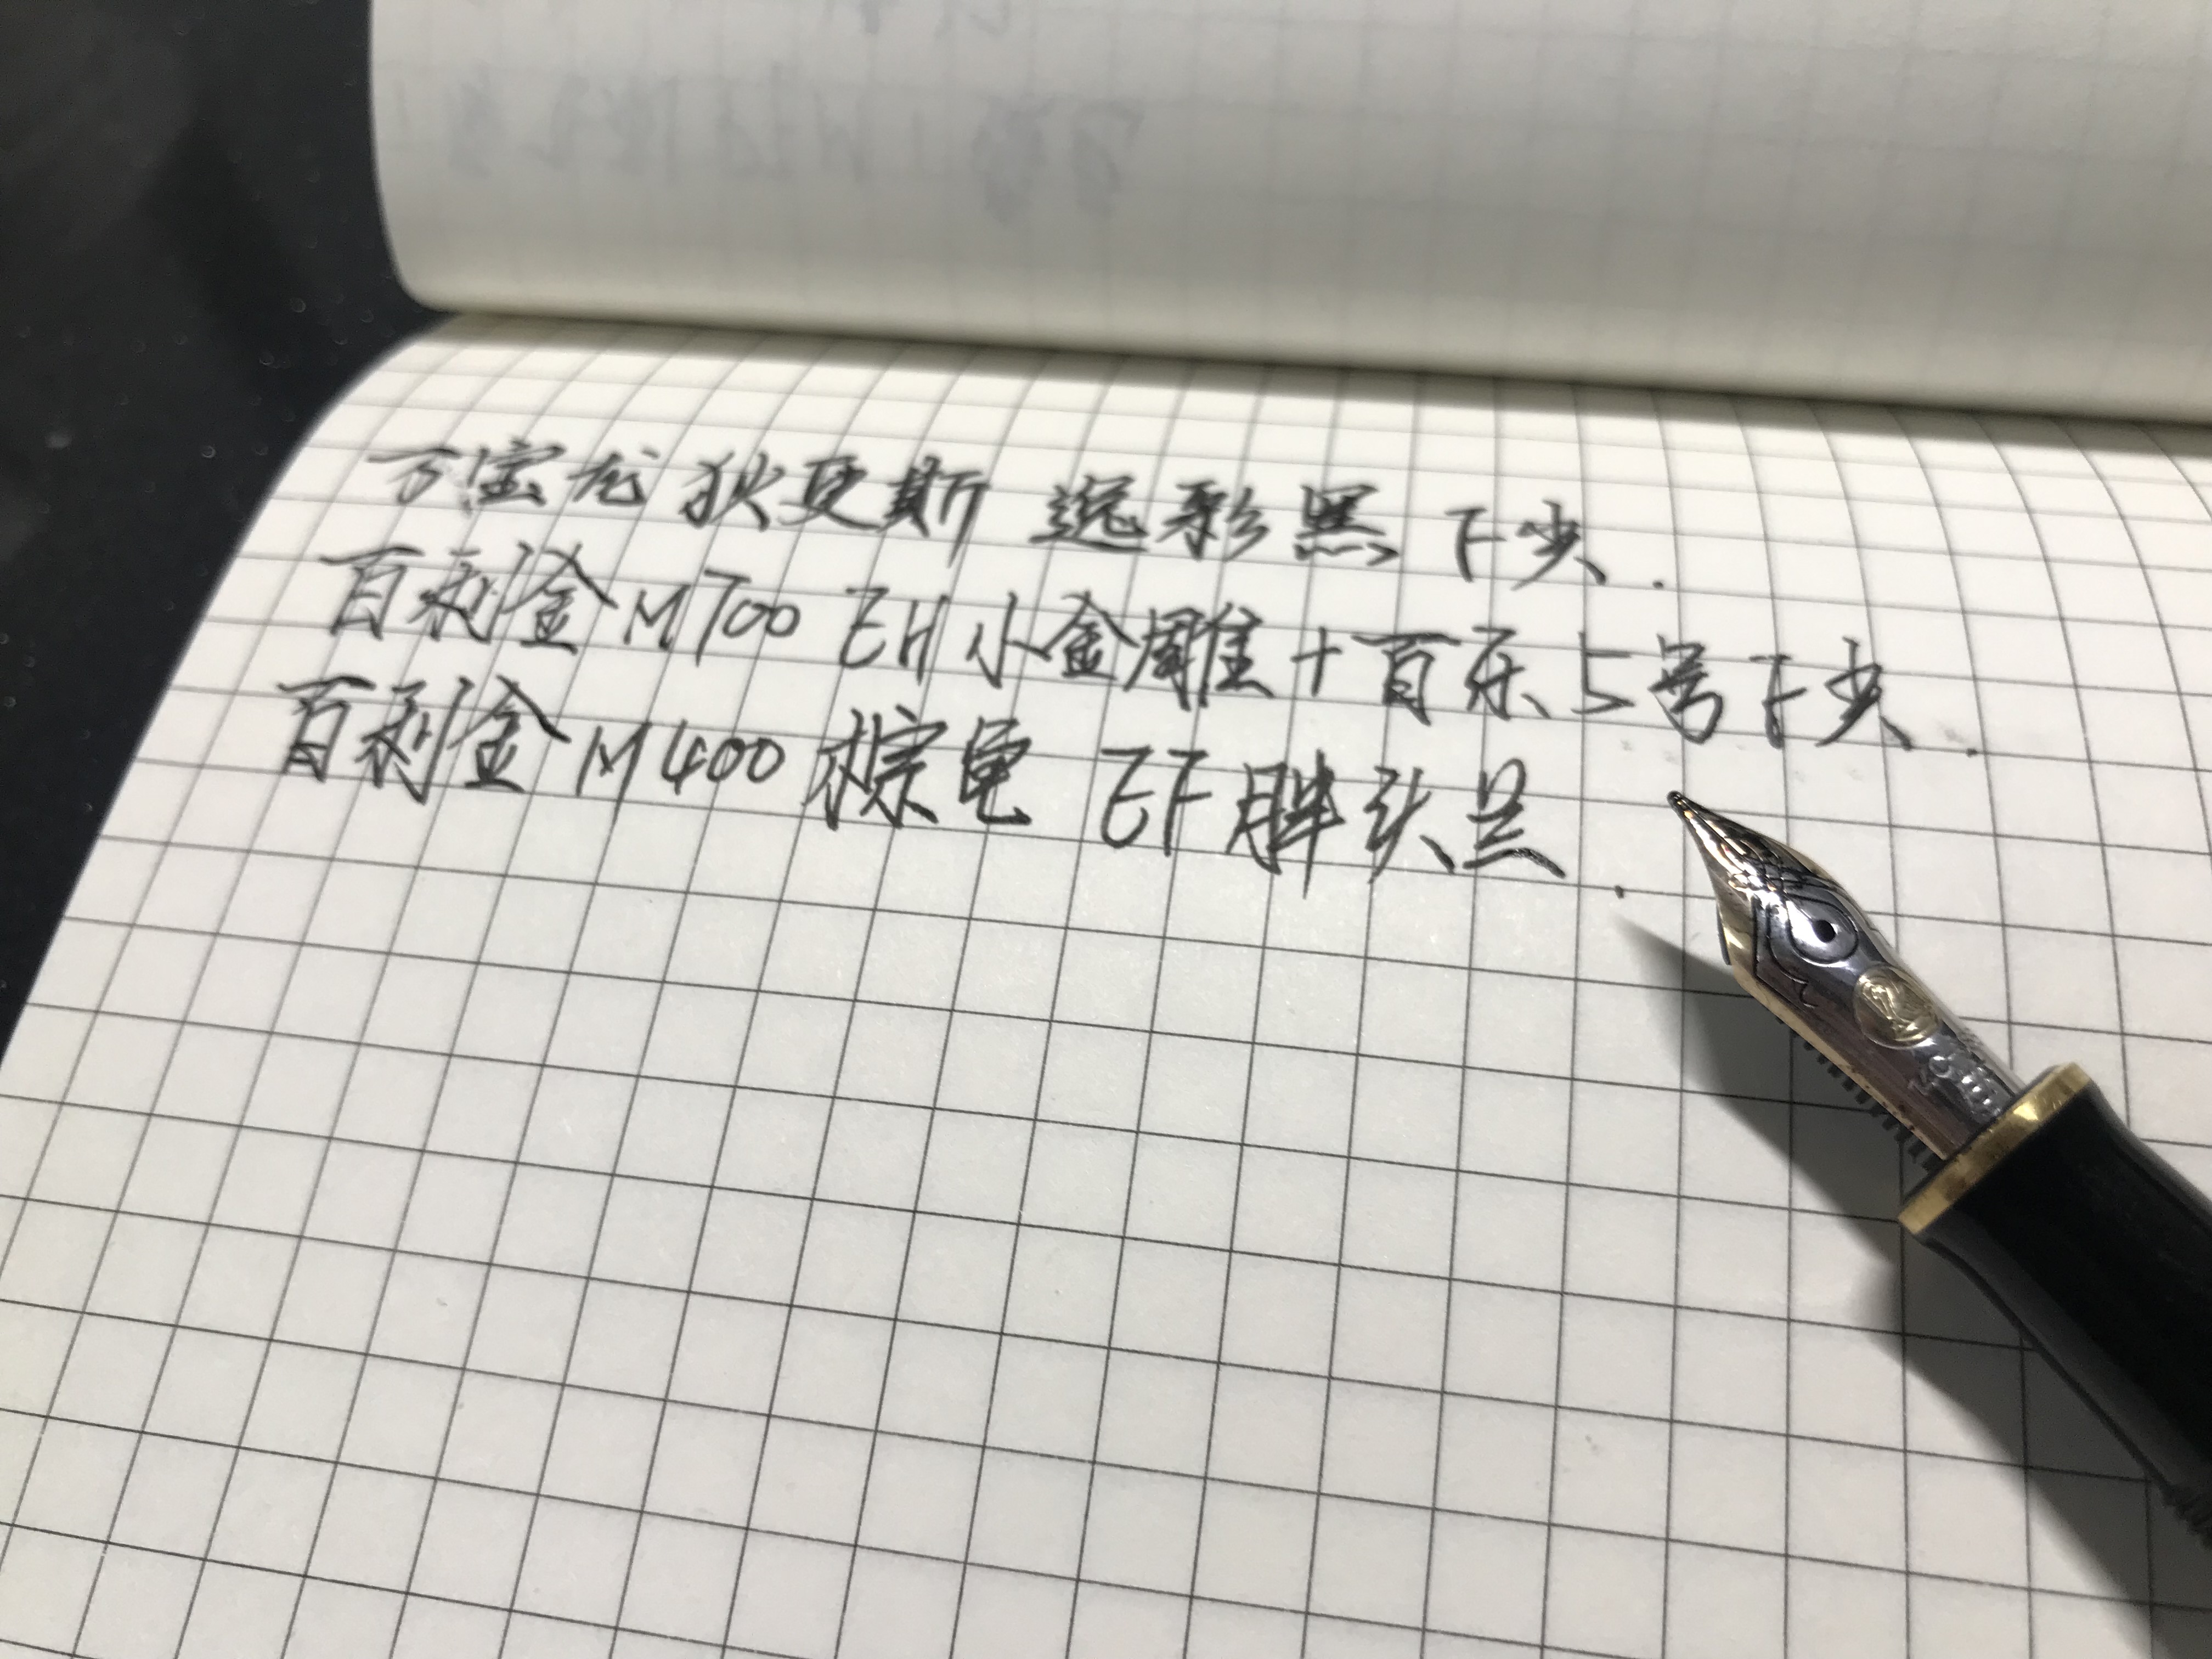 万宝龙 狄更斯 逸彩黑 F尖.
百利金 M700 EH 小金雕 + 百乐 5号 F尖.
百利金 M400 棕龟 EF 胖头